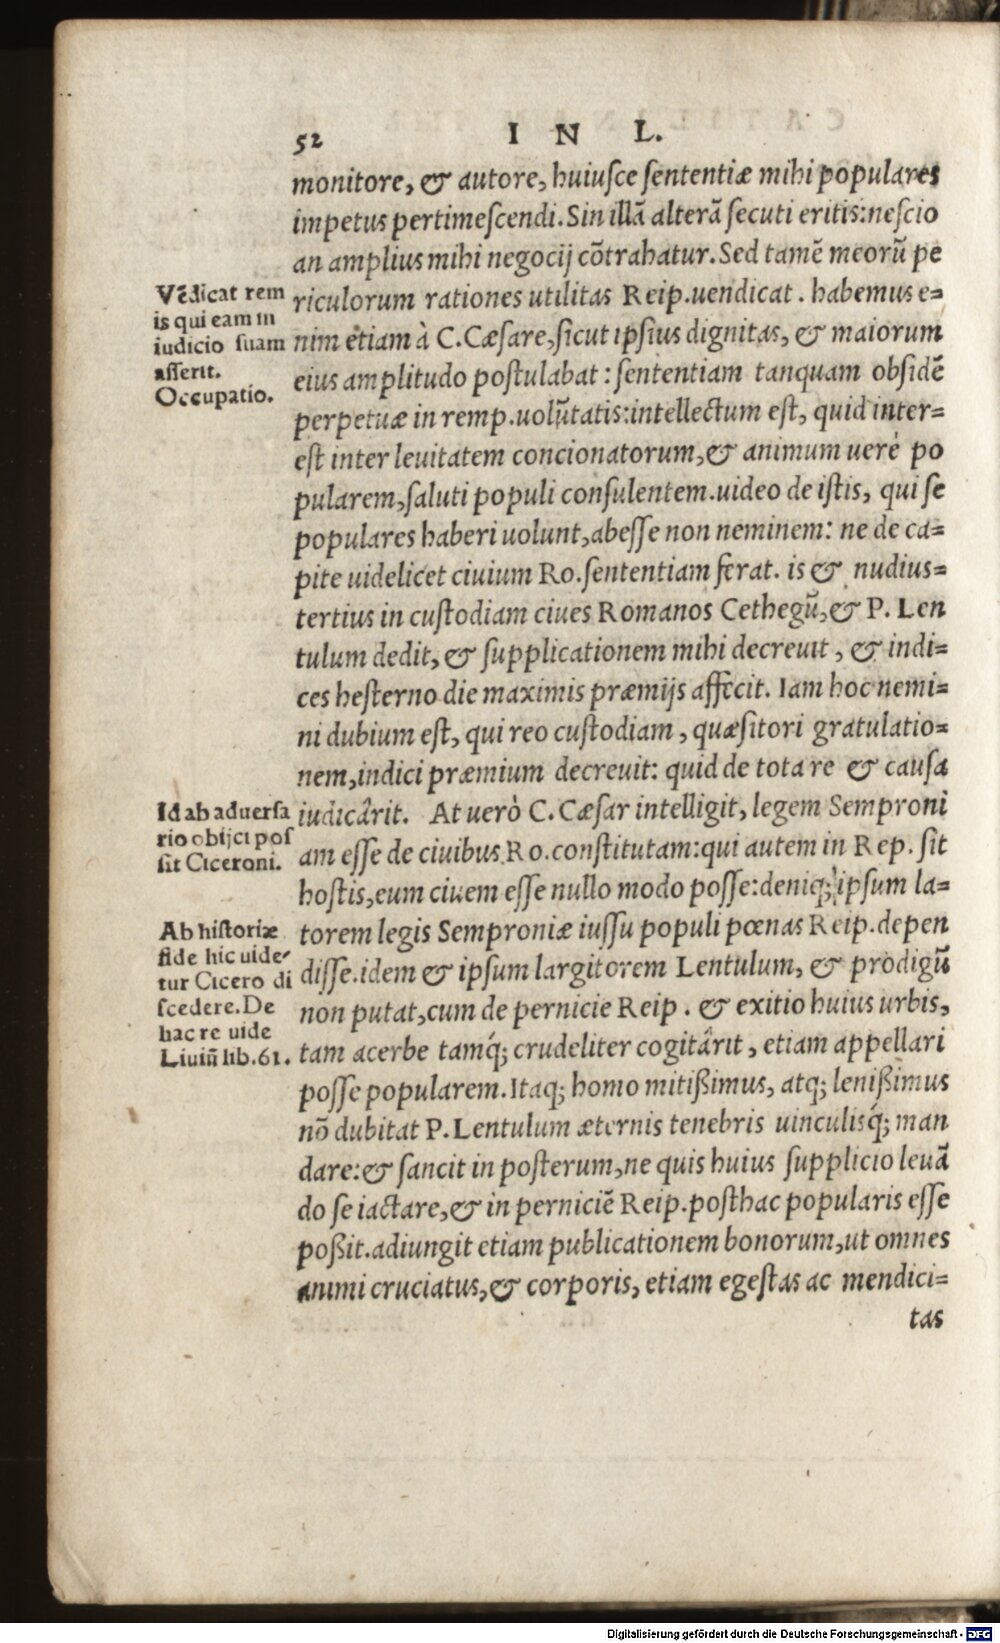 52 I N L.
monitore, & autore, huiusce sententiæ mihi populares
impetus pertimescendi. Sin illā alterā secuti eritis: nescio
an amplius mihi negocij cōtrahatur. Sed tamē meorū pe
riculorum rationes utilitas Reip. uendicat. habemus e=
nim etiam à C. Cæsare, sicut ipsius dignitas, & maiorum
eius amplitudo postulabat: sententiam tanquam obsidē
perpetuæ in remp. uolūtatis: intellectum est, quid inter=
est inter leuitatem concionatorum, & animum uerè po
pularem, saluti populi consulentem. uideo de istis, qui se
populares haberi uolunt, abesse non neminem: ne de ca=
pite uidelicet ciuium Ro. sententiam ferat. is & nudius=
tertius in custodiam ciues Romanos Cethegū, & P. Len
tulum dedit, & supplicationem mihi decreuit, & indi=
ces hesterno die maximis præmijs affecit. Iam hoc nemi=
ni dubium est, qui reo custodiam, quæsitori gratulatio=
nem, indici præmium decreuit: quid de tota re & causa
iudicârit. At uerò C. Cæsar intelligit, legem Semproni
am esse de ciuibus Ro. constitutam: qui autem in Rep. sit
hostis, eum ciuem esse nullo modo posse: deniq; ipsum la=
torem legis Semproniæ iussu populi pœnas Reip. depen
disse. idem & ipsum largitorem Lentulum, & prodigū
non putat, cum de pernicie Reip. & exitio huius urbis,
tam acerbe tamq́; crudeliter cogitârit, etiam appellari
posse popularem. Itaq; homo mitißimus, atq; lenißimus
nō dubitat P. Lentulum æternis tenebris uinculisq́; man
dare: & sancit in posterum, ne quis huius supplicio leuā
do se iactare, & in perniciē Reip. posthac popularis esse
poßit. adiungit etiam publicationem bonorum, ut omnes
animi cruciatus, & corporis, etiam egestas ac mendici=
tas
Vēdicat rem
is qui eam in
iudicio suam
asserit.
Occupatio.
Id ab aduersa
rio obijci pos
sit Ciceroni.
Ab historiæ
fide hic uide
tur Cicero di
scedere. De
hac re uide
Liuiū lib. 61.
Digitalisierung gefördert durch die Deutsche Forschungsgemeinschaft - DFG